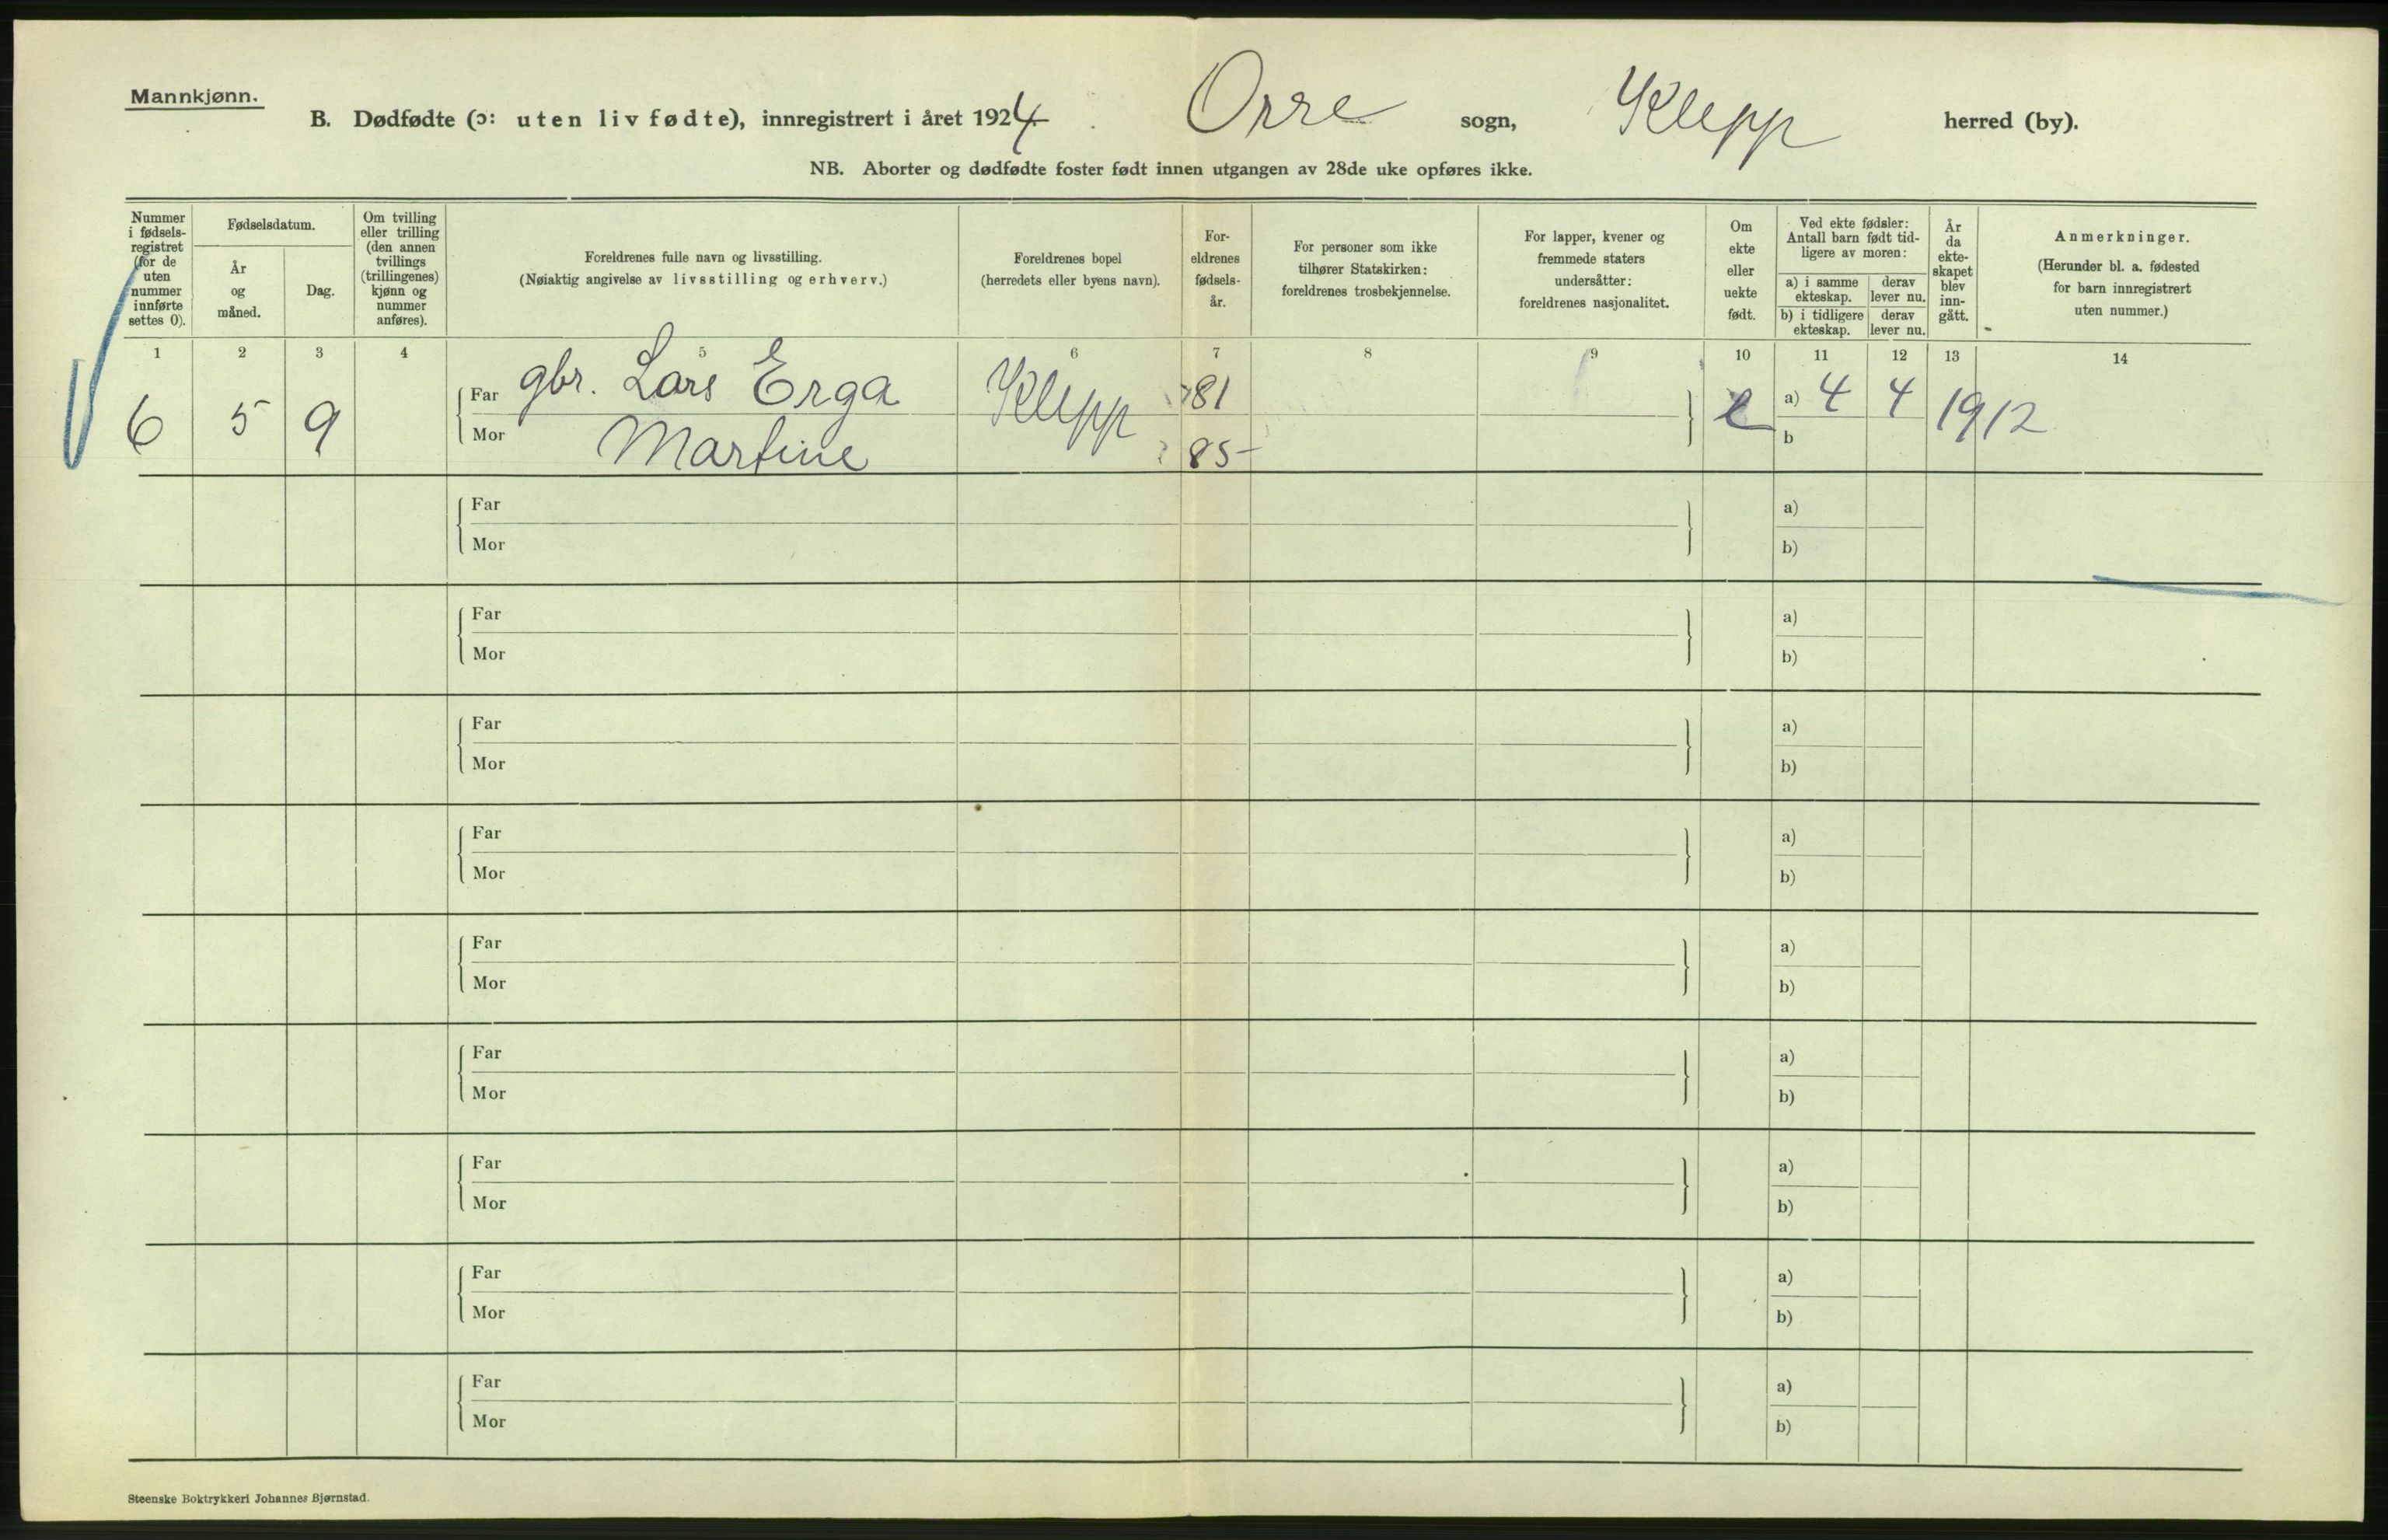 Mannkjønn.
B. Dødfødte (ɔ: uten liv fødte), innregistrert i året 1924 Orre sogn, Klepp herred (by).
NB. Aborter og dødfødte foster født innen utgangen av 28de uke opføres ikke.
Nummer i fødsels-registret (for de uten nummer innførte settes 0).
Fødselsdatum.
År og måned.
Dag.
Om tvilling eller trilling (den annen tvillings (trillingenes) kjønn og nummer anføres).
Foreldrenes fulle navn og livsstilling.
(Nøiaktig angivelse av livsstilling og erhverv.)
Foreldrenes bopel
(herredets eller byens navn).
For-eldrenes fødsels-år.
For personer som ikke tilhører Statskirken: foreldrenes trosbekjennelse.
For lapper, kvener og fremmede staters undersåtter: foreldrenes nasjonalitet.
Om ekte eller uekte født.
Ved ekte fødsler: Antall barn født tid-ligere av moren:
a) i samme ekteskap.
derav lever nu.
b) i tidligere ekteskap.
derav lever nu.
År da ekte-skapet blev inn-gått.
Anmerkninger.
(Herunder bl. a. fødested for barn innregistrert uten nummer.)
1 2 3 4 5 6 7 8 9 10 11 12 13 14
6 5 9 Far gbr. Lars Erga Klepp 81 e a) 4 4 1912
Mor Martine 85 b
Far a)
Mor b)
Far a)
Mor b)
Far a)
Mor b)
Far a)
Mor b)
Far a)
Mor b)
Far a)
Mor b)
Far a)
Mor b)
Far a)
Mor b)
Far a)
Mor b)
Steenske Boktrykkeri Johannes Bjørnstad.